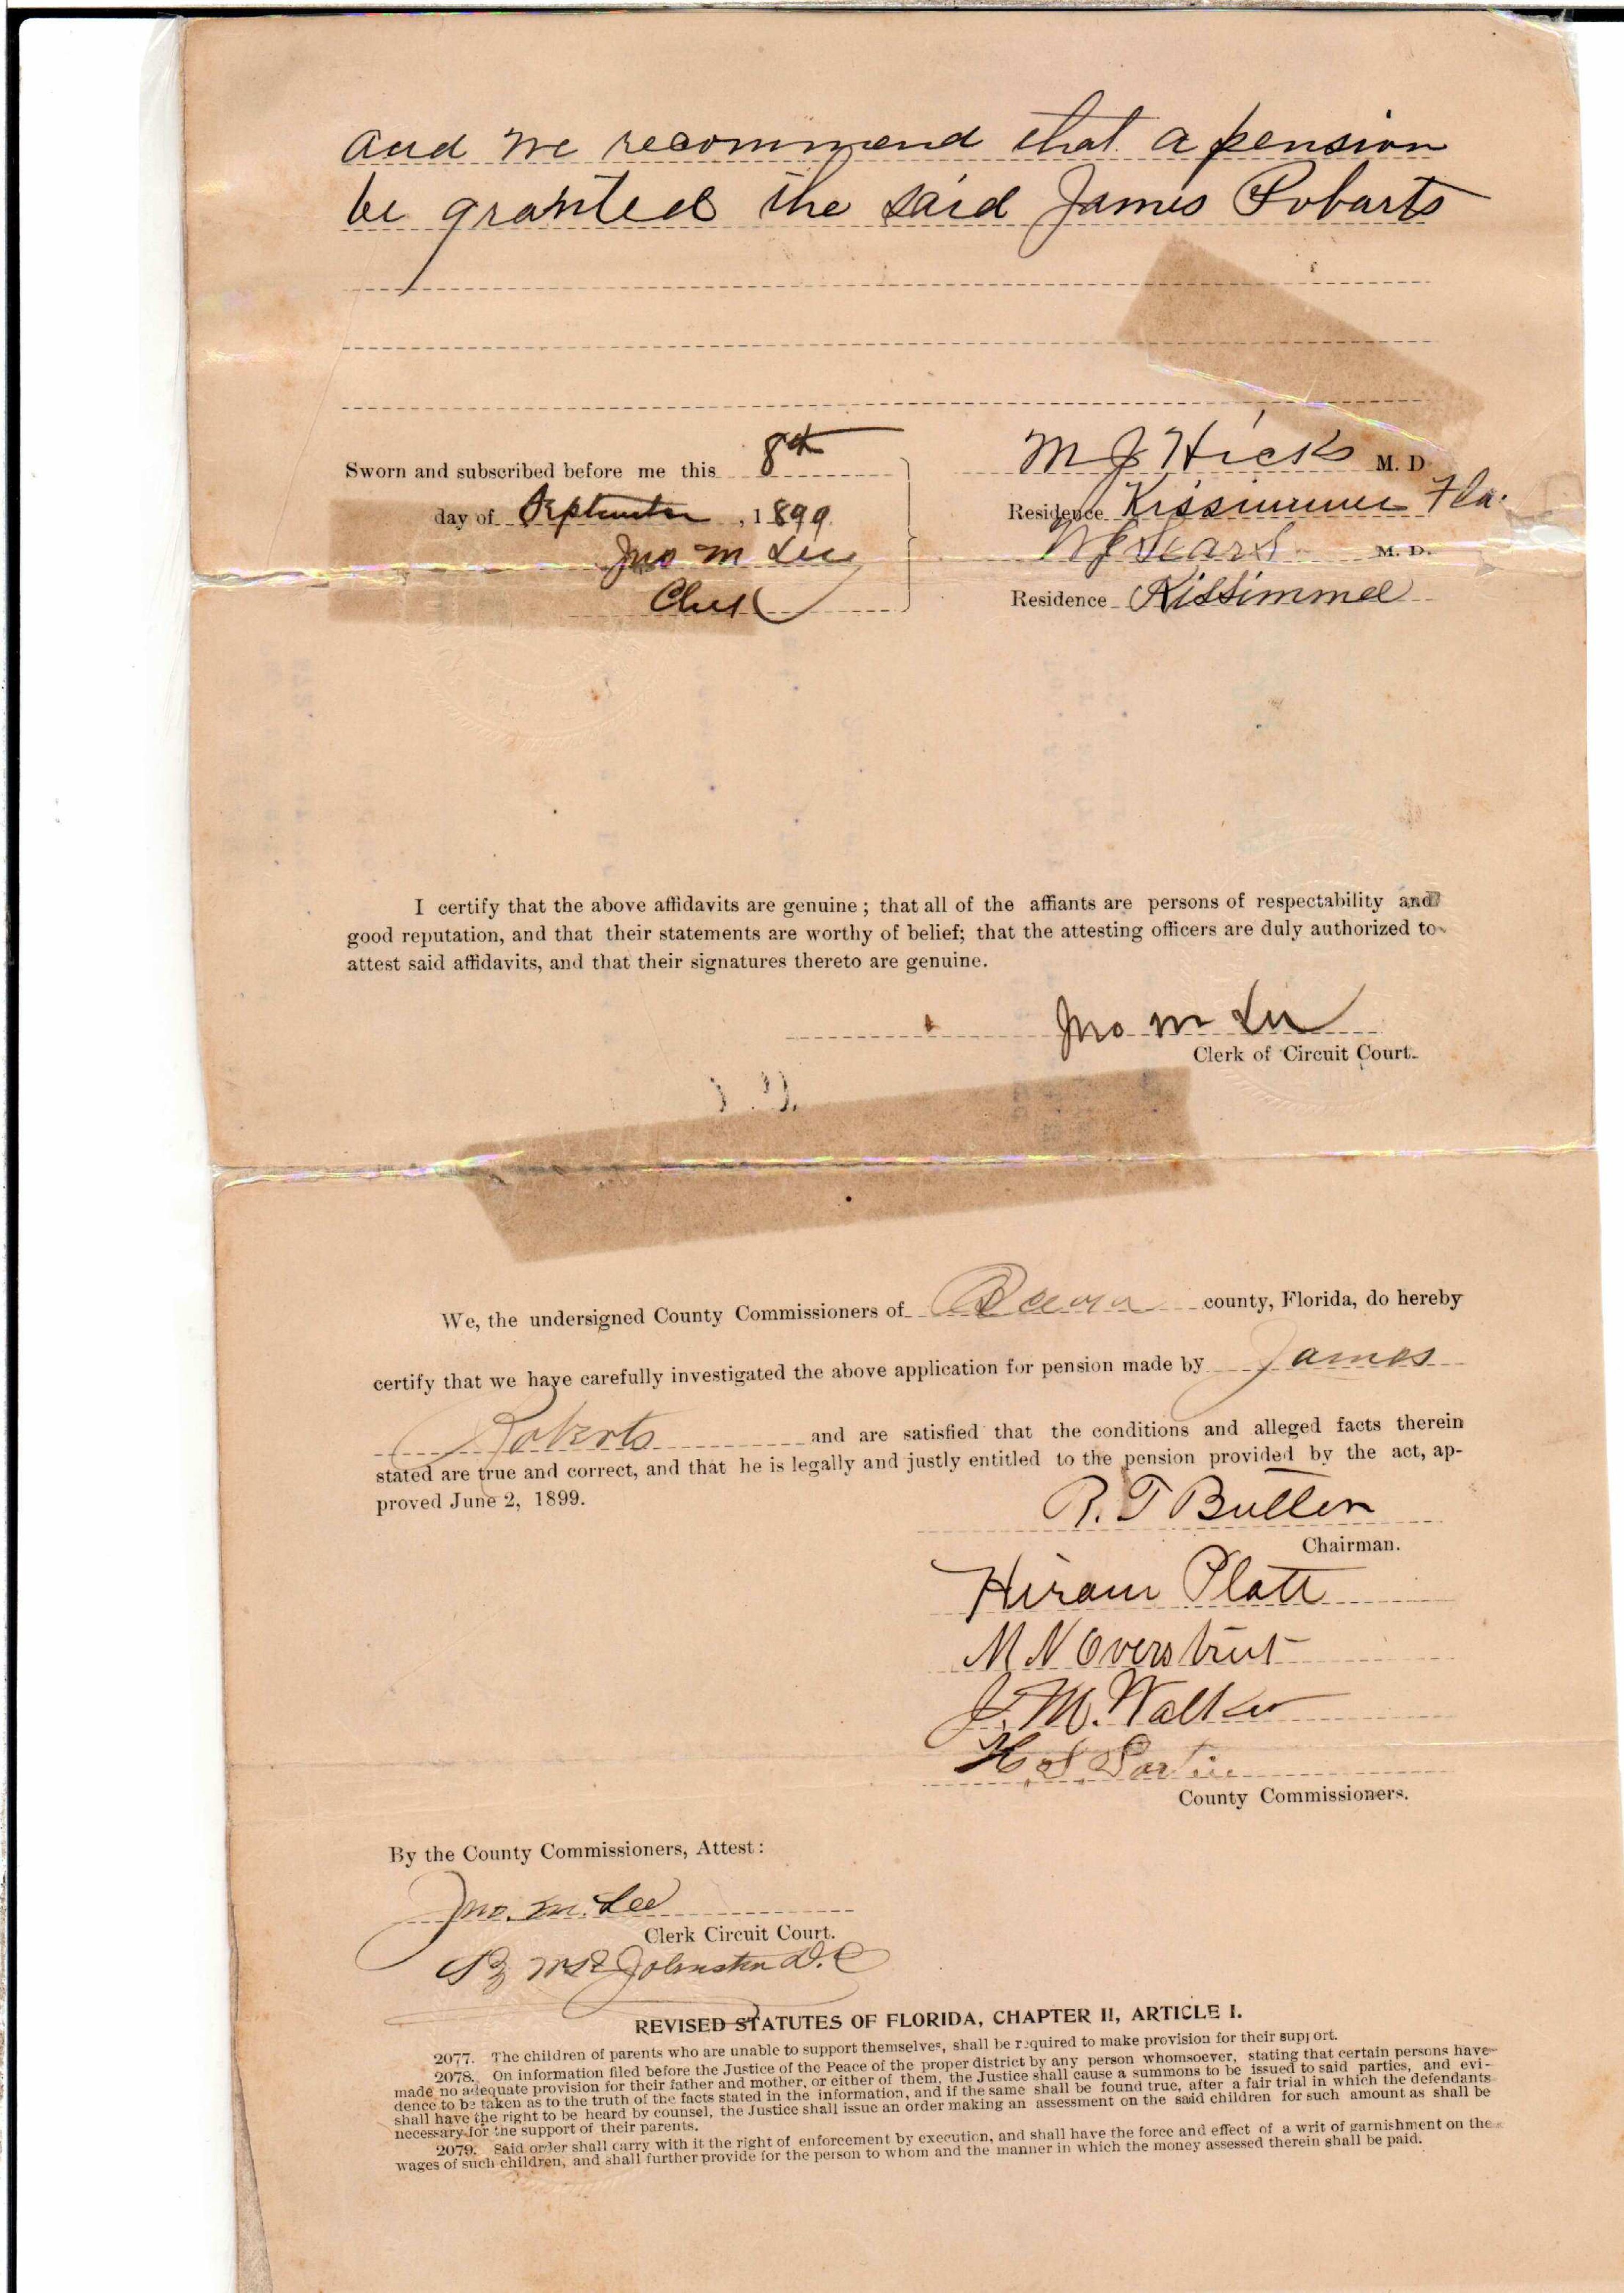 and we recommend that a pension
be granted the said James Robarts
Sworn and subscribed before me this 8th
day of September, 1899.
Jno M Lee
Clerk
M J Hicks M. D.
Residence Kissimmee Fla.
Sears M. D.
Residence Kissimmee
I certify that the above affidavits are genuine; that all of the affiants are persons of respectability and
good reputation, and that their statements are worthy of belief; that the attesting officers are duly authorized to
attest said affidavits, and that their signatures thereto are genuine.
Jno M Lee
Clerk of Circuit Court.
We, the undersigned County Commissioners of county, Florida, do hereby
certify that we have carefully investigated the above application for pension made by James
Roberts and are satisfied that the conditions and alleged facts therein
stated are true and correct, and that he is legally and justly entitled to the pension provided by the act, ap-
proved June 2, 1899.
R. T Bullen
Chairman.
Hiram Platt
M N Overstreet
J. M. Walker
H. S. Partin
County Commissioners.
By the County Commissioners, Attest:
Jno. M. Lee
Clerk Circuit Court.
By Johnston D. C
REVISED STATUTES OF FLORIDA, CHAPTER II, ARTICLE I.
2077. The children of parents who are unable to support themselves, shall be required to make provision for their support.
2078. On information filed before the Justice of the Peace of the proper district by any person whomsoever, stating that certain persons have
made no adequate provision for their father and mother, or either of them, the Justice shall cause a summons to be issued to said parties, and evi-
dence to be taken as to the truth of the facts stated in the information, and if the same shall be found true, after a fair trial in which the defendants
shall have the right to be heard by counsel, the Justice shall issue an order making an assessment on the said children for such amount as shall be
necessary for the support of their parents.
2079. Said order shall carry with it the right of enforcement by execution, and shall have the force and effect of a writ of garnishment on the
wages of such children, and shall further provide for the person to whom and the manner in which the money assessed therein shall be paid.